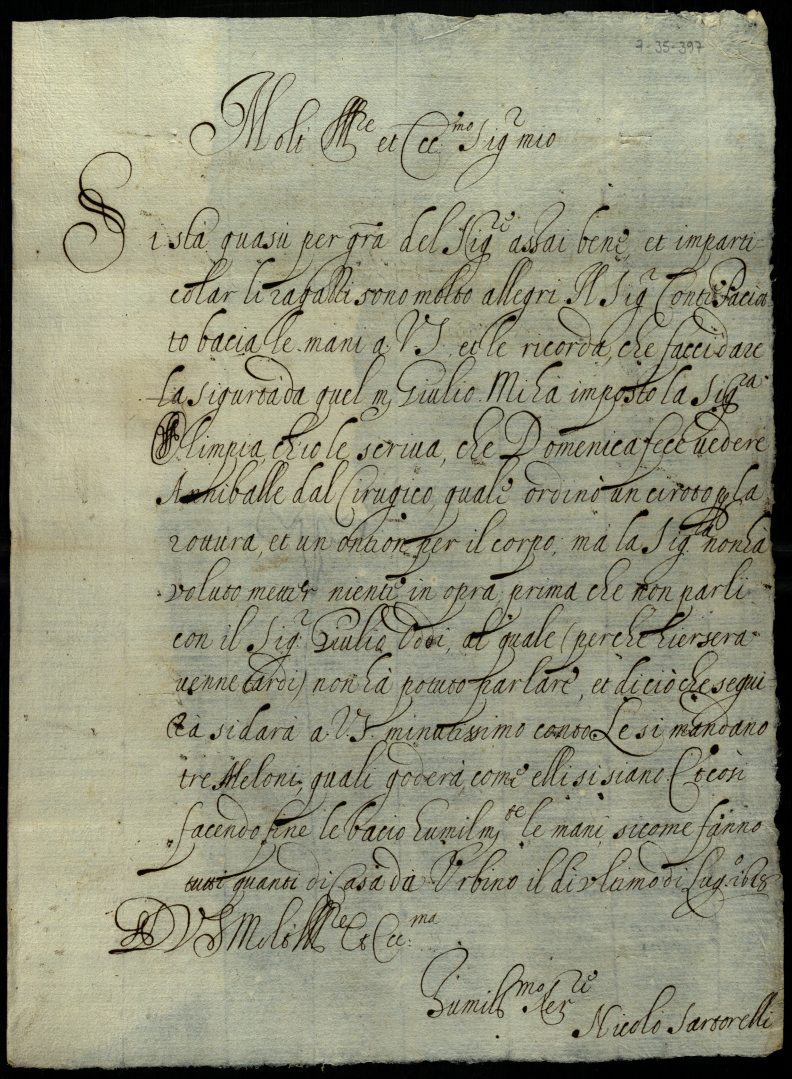 7-35-397
Molt Ill.re et Ecc.mo Sig.r mio
Si stà quasù per gr̃a del Sig.re assai bene, et imparti=
colar li ragazzi sono molto allegri. Il Sig.r Conte Pacioto
to bacia le mani a V.S. et le ricorda, che facci dare
la sigurtà da quel m. Giulio. Mi hà imposto la Sig.ra
Olimpia, ch'io le scriva, che Domenica fece vedere
Anniballe dal Cirugico quale ordinò un ciroto p la
rottura, et un ontion per il corpo; mà la Sig.ra non hà
voluto metter niente in opra prima che non parli
con il Sig.r Giulio, al quale (perche hiersera
venne tardi) non hà potuto parlare, et di ciò che segui=
rà si darà a V.S. minutissimo conto. Le si mandano
tre Meloni, quali goderà, come elli si siano. Et così
facendo fine le bacio humilm.te le mani, sicome fanno
tutti quanti di Casa da Urbino il di ultimo di Lug.o 1618
D V S Molt Ill.re Et Ecc.ma
Humiliss.mo Ser.re
Nicolò Sartorelli